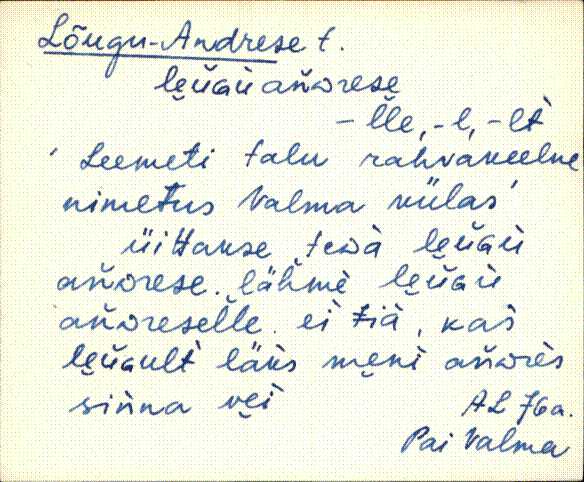 Lõugu-Andrese t.
le̮ŭGù añDrese
- l̆le, -l, -lt̀
'Leemeti talu rahvakeelne
nimetus Valma külas'
üittakse tedà le̮ŭGù
añDrese. lähmè le̮ŭGù
añDresel̆le. ei tiä, kas
le̮ŭGult̀ läks me̮nì añDrès
sinna ve̮i
AL 76a.
Pai Valma